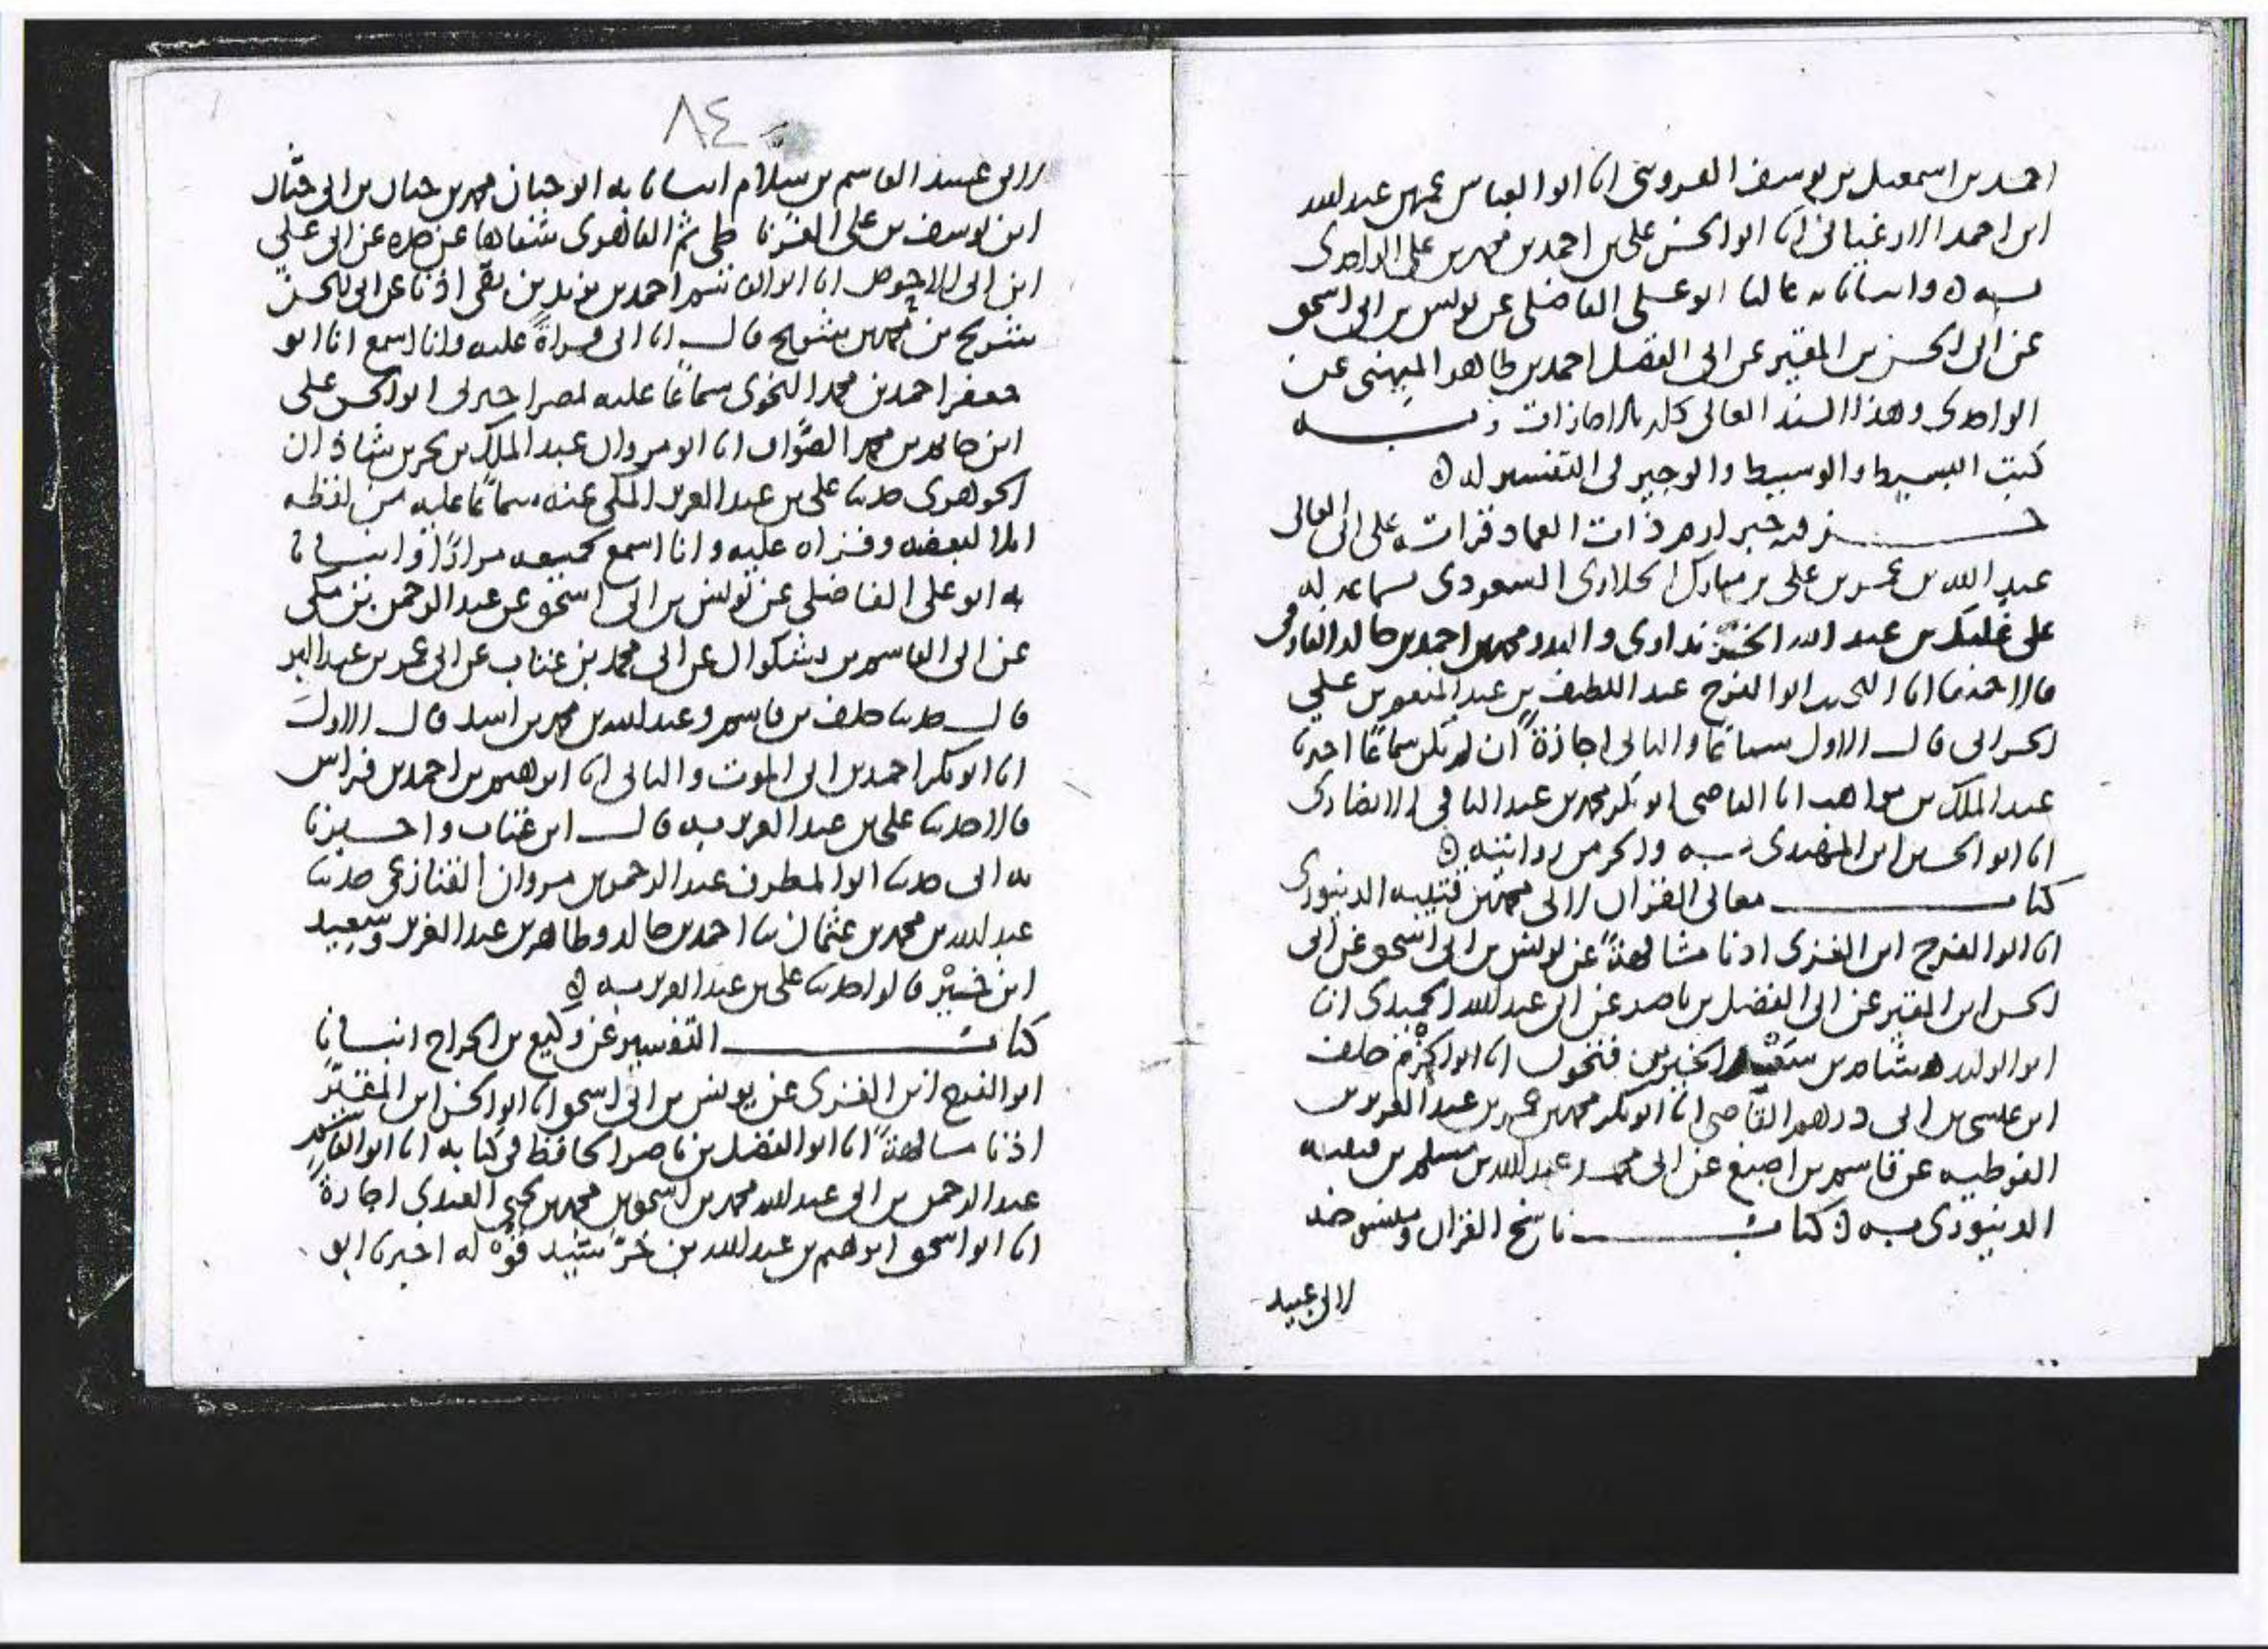 احمد بن اسمعيل بن يوسف القزويني انا ابو العباس عمر بن عبد الله
ابن احمد الارغياني انا ابو الحسن علي بن احمد بن محمد بن علي الواحدي
به ٥ وانبانا به عاليا ابو علي الفاضلي عن يونس بن ابي اسحق
عن ابي الحسن بن المقير عن ابي الفضل احمد بن طاهر الميهني عن
الواحدي وهذا السند العالي كله بالاجازات وبه
كتب البسيط والوسيط والوجيز في التفسير له ٥
جزء فيه خبر ارم ذات العماد قرات على ابي المعالي
عبد الله بن عمر بن علي بن مبارك الحلاوي السعودي بسماعه له
على غلبك بن عبد الله الخزنداوي والبدر محمد بن احمد بن خالد الفارقي
قالا انا النجيب ابو الفرج عبد اللطيف بن عبد المنعم بن علي
الحراني قال الاول سماعا والثاني اجازة ان لم يكن سماعا اخبرنا
عبد الملك بن مواهب انا القاضي ابو بكر محمد بن عبد الباقي الانصاري
انا ابو الحسين ابن المهتدي به والجزء من روايته ٥
كتاب معاني القران لابي محمد بن قتيبه الدينوري
انا ابو الفرج ابن الغزي اذنا مشافهة عن يونس بن ابي اسحق عن ابي
الحسن ابن المقير عن ابي الفضل بن ناصر عن ابي عبد الله الحميدي انا
ابو الوليد هشام بن سعيد الخير بن فتحون انا ابو الحزم خلف
ابن عيسى بن ابي درهم القاضي انا ابو بكر محمد بن عمر بن عبد العزيز بن
القوطيه عن قاسم بن اصبغ عن ابي محمد عبد الله بن مسلم بن قتيبه
الدينوري به ٥ كتاب ناسخ القران ومنسوخه
لابي عبيد
٨٤
لابي عبيد القاسم بن سلام انبانا به ابو حيان محمد بن حيان بن ابي حيان
ابن يوسف بن علي الغرناطي ثم القاهري شفاها عن جده عن ابي علي
ابن ابي الاحوص انا ابو القاسم احمد بن يزيد بن بقي اذنا عن ابي الحسن
شريح بن محمد بن شريح قال انا ابي قراة عليه وانا اسمع انا ابو
جعفر احمد بن محمد النحوي سماعا عليه بمصر اخبرني ابو الحسن علي
ابن جابر بن محمد الصواف انا ابو مروان عبد الملك بن بحر بن شاذان
الجوهري حدثنا علي بن عبد العزيز المكي عنه سماعا عليه من لفظه
املا لبعضه وقراه عليه وانا اسمع لجميعه مرارا ٥ وانبانا
به ابو علي الفاضلي عن يونس بن ابي اسحق عن عبد الرحمن بن مكي
عن ابي القاسم بن بشكوال عن ابي محمد بن عتاب عن ابي عمر بن عبد البر
قال حدثنا خلف بن قاسم وعبد الله بن محمد بن اسد قال الاول
انا ابو بكر احمد بن ابي الموت والثاني انا ابرهيم بن احمد بن فراس
قالا حدثنا علي بن عبد العزيز به قال ابن عتاب واخبرنا
به ابي حدثنا ابو المطرف عبد الرحمن بن مروان القنازعي حدثنا
عبد الله بن محمد بن عثمان ثنا احمد بن خالد وطاهر بن عبد العزيز وسعيد
ابن خمير قالوا حدثنا علي بن عبد العزيز به ٥
كتاب التفسير عن وكيع بن الجراح انبانا
ابو الفرج ابن الغزي عن يونس بن ابي اسحق انا ابو الحسن ابن المقير
اذنا مشافهة انا ابو الفضل بن ناصر الحافظ في كتابه انا ابو القاسم
عبد الرحمن بن ابي عبد الله محمد بن اسحق بن محمد بن يحيى العبدي اجازة
انا ابو اسحق ابرهيم بن عبد الله بن خرشيد قوله اخبرنا ابو